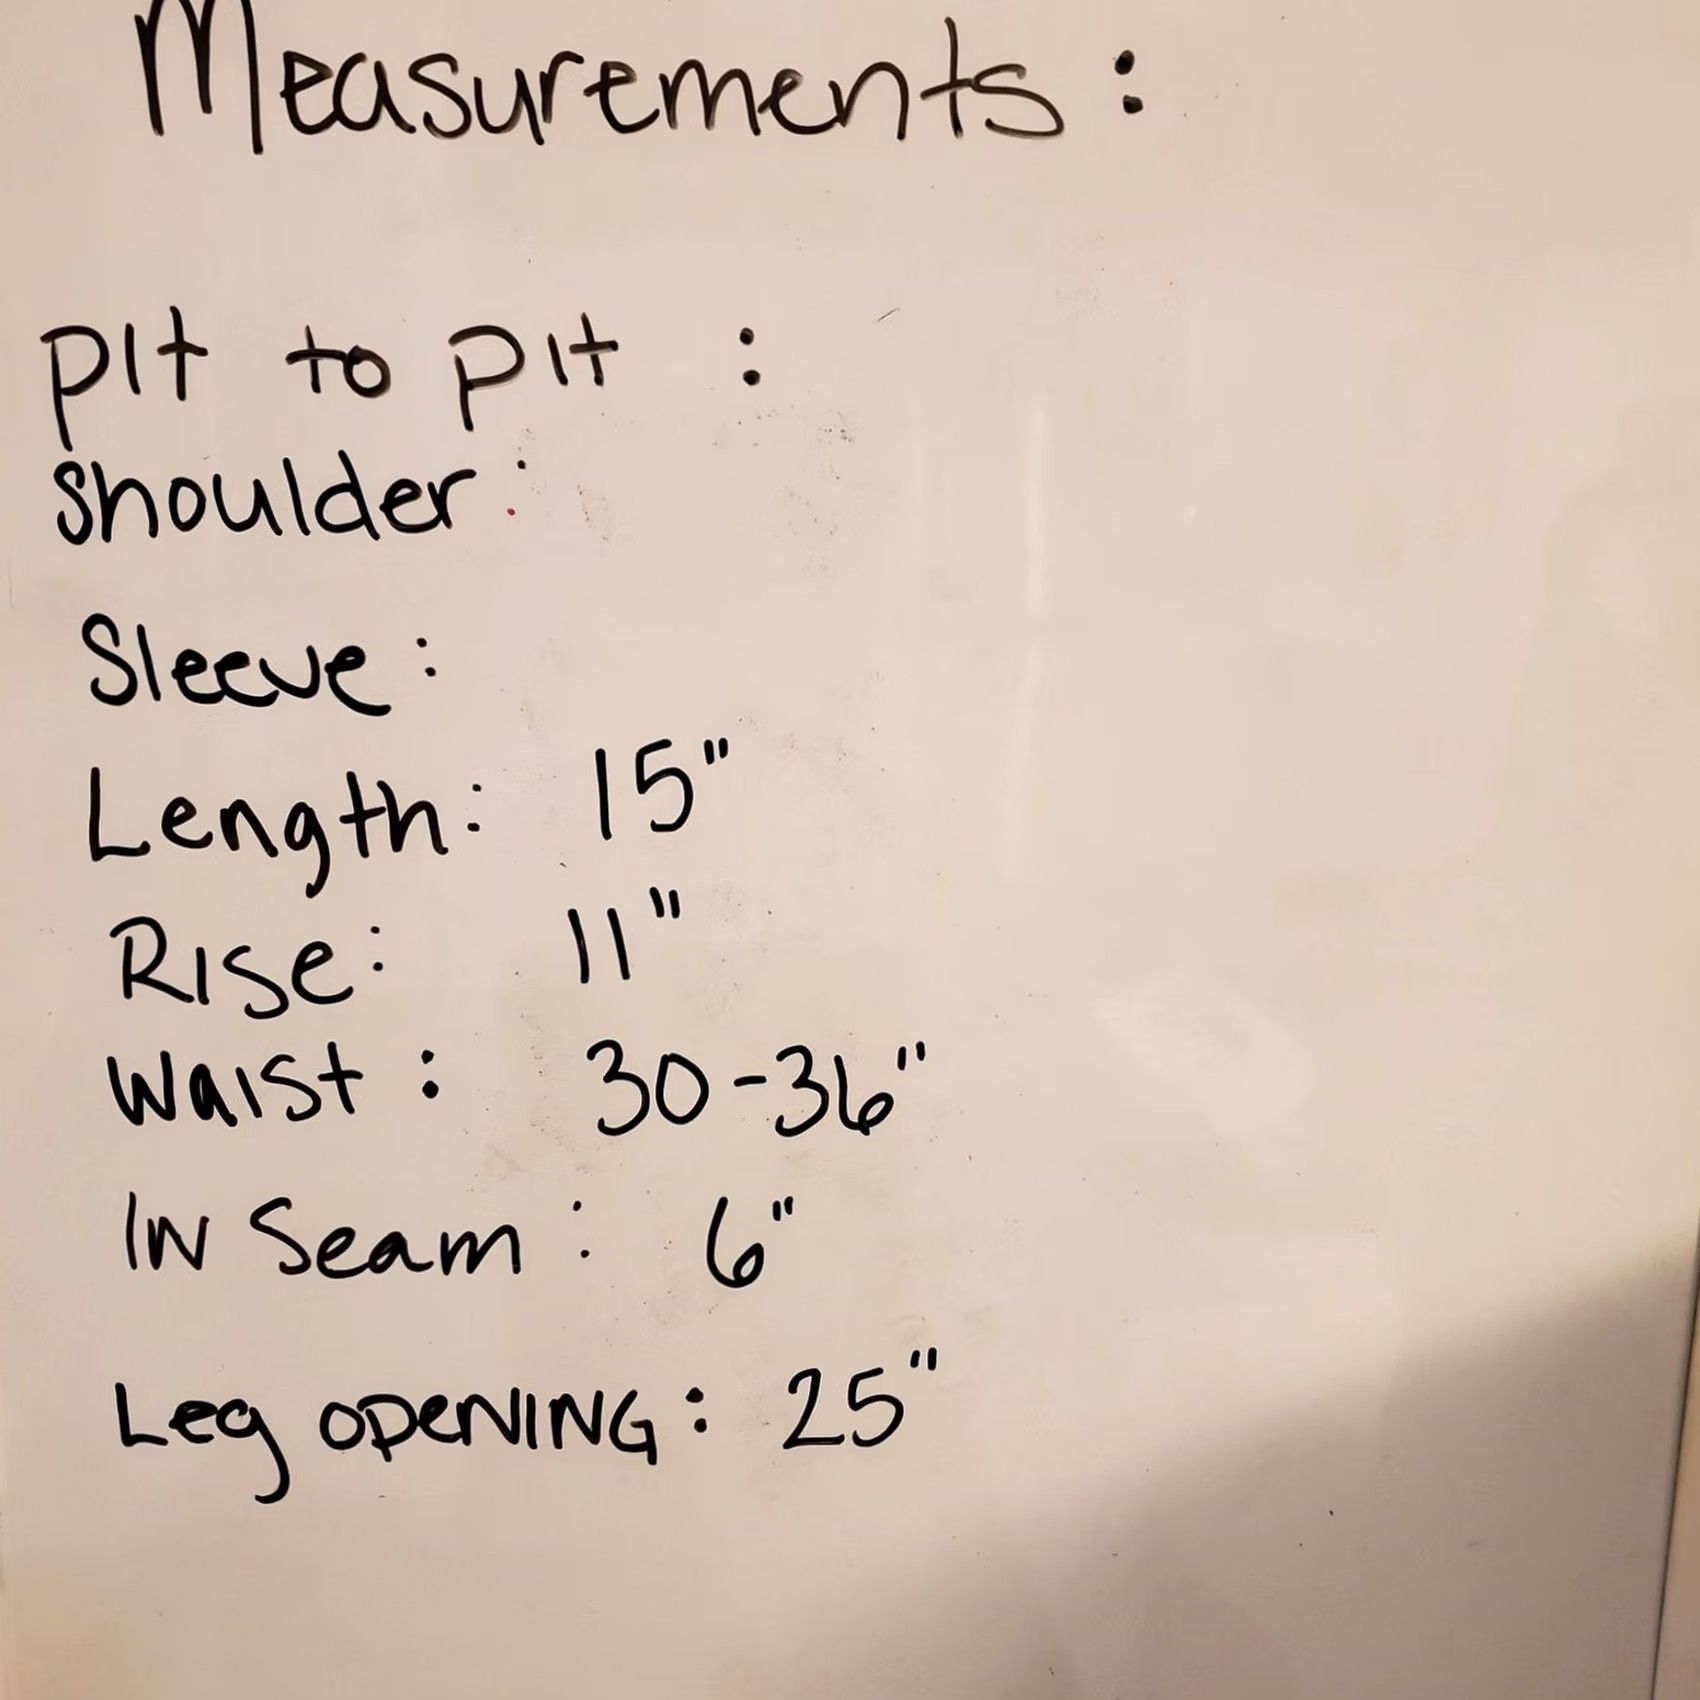 Measurements:
pit to pit :
shoulder:
Sleeve:
Length: 15"
Rise: 11"
Waist: 30-36"
IN Seam: 6"
Leg OPENING: 25"